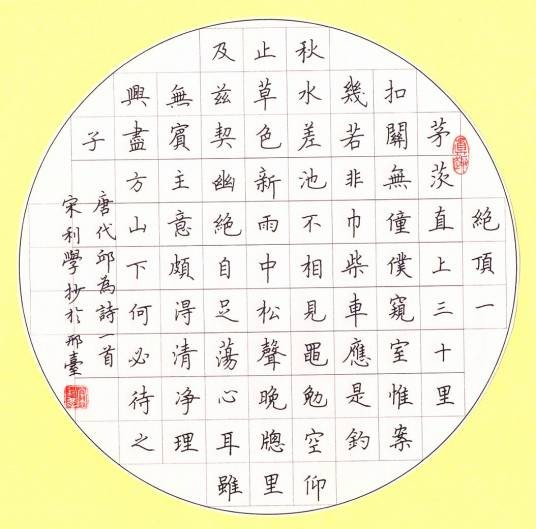 絶頂一
茅茨直上三十里
扣關無僮僕窺室惟案
幾若非巾柴車應是釣
秋水差池不相見黽勉空仰
止草色新雨中松聲晚牕里
及兹契幽絶自足蕩心耳雖
無賓主意頗淂清净理
興盡方山下何必待之
子
唐代邱為詩一首
宋利學抄於邢臺